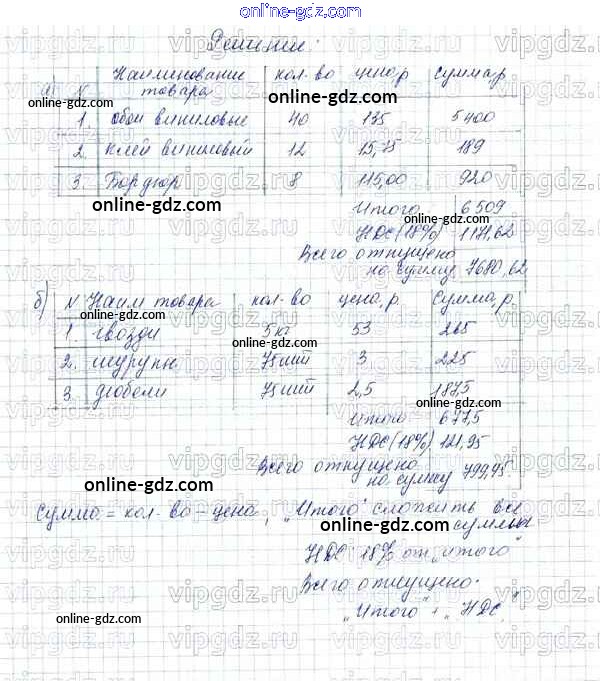 online-gdz.com
Решение:
а) N Наименование товара кол-во цена, р Сумма, р
online-gdz.com
online-gdz.com
1. обои виниловые 40 135 5400
2. клей виниловый 12 15,75 189
3. Бордюр 8 115,00 920
online-gdz.com
Итого 6509
online-gdz.com
НДС (18%) 1171,62
Всего отпущено
на сумму 7680,62
б) N Наим товара кол-во цена, р. Сумма, р.
online-gdz.com
1. гвозди 5 кг 53 265
2. шурупы 75 шт 3 225
3. дюбели 75 шт 2,5 187,5
online-gdz.com
Итого 677,5
НДС (18%) 121,95
Всего отпущено
на сумму 799,45.
online-gdz.com
Сумма = кол-во - цена, „Итого" сложить все
суммы
online-gdz.com
НДС: 18% от „итого"
Всего отпущено:
„Итого" + „НДС"
online-gdz.com
online-gdz.com
vipgdz.ru